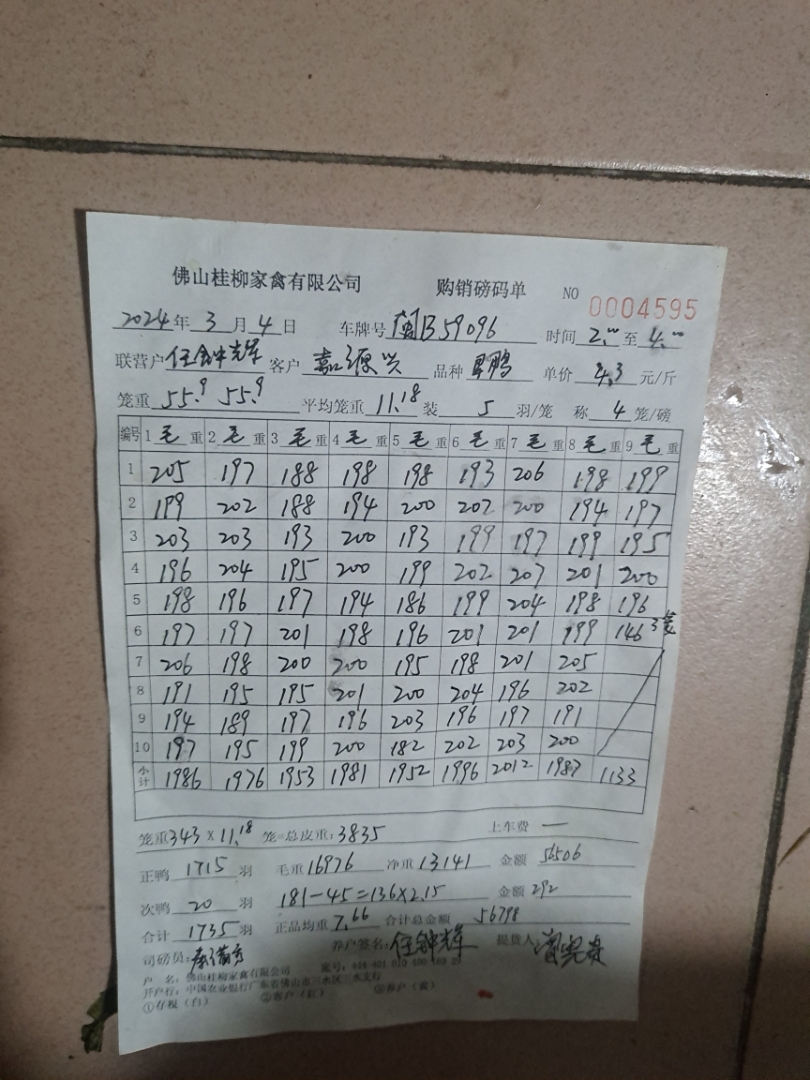 佛山桂柳家禽有限公司 购销磅码单 NO 0004595
2024年 3月 4日 车牌号 闽B59096 时间 2:00 至 4:00
联营户 任钟辉 客户 嘉源兴 品种 单价 4.3 元/斤
笼重 55.9 55.9 平均笼重 11.18 装 5 羽/笼 称 4 笼/磅
编号 1 毛 重 2 毛 重 3 毛 重 4 毛 重 5 毛 重 6 毛 重 7 毛 重 8 毛 重 9 毛 重
1 205 197 188 198 198 193 206 198 199
2 199 202 188 194 200 207 200 194 197
3 203 203 193 200 193 199 197 199 195
4 196 204 195 200 199 202 207 201 200
5 198 196 197 194 186 199 204 198 196
6 197 197 201 198 196 201 201 199 146 3笼
7 206 198 200 200 195 198 201 205
8 191 195 195 201 200 204 196 202
9 194 189 197 196 203 196 197 191
10 197 195 199 200 182 202 203 200
小计 1986 1976 1953 1981 1952 1996 2012 1987 1133
笼重 343 × 11.18 笼=总皮重: 3835 上车费 —
正鸭 1715 羽 毛重 16976 净重 13141 金额 56506
次鸭 20 羽 181-45=136×2.15 金额 292
合计 1735 羽 正品均重 7.66 合计总金额 56798
司磅员: 养户签名: 任钟辉 提货人
户 名: 佛山桂柳家禽有限公司 账号:
开户行: 中国农业银行广东省佛山市三水区三水支行
①存根（白） ②客户（红） ③客户（黄）